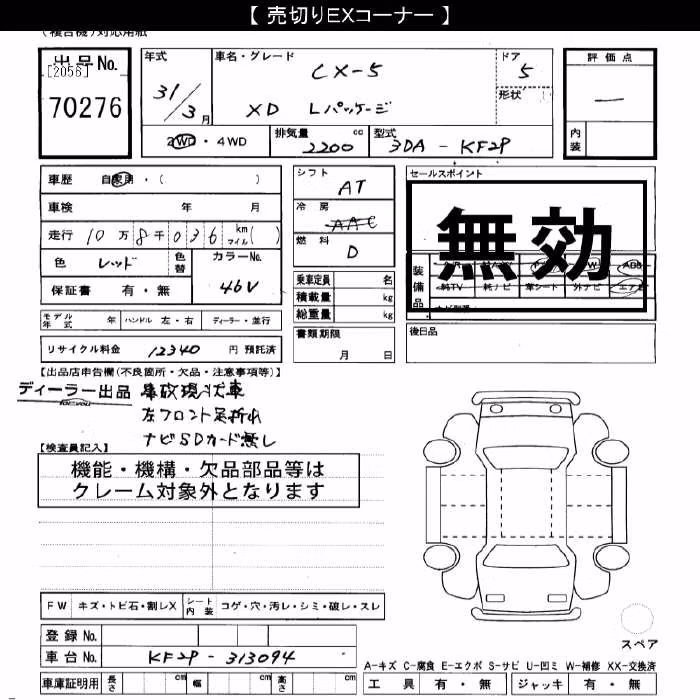 【 売切りEXコーナー 】
(複合機)対応用紙
出品No. [2056] 70276
年式 31/3月
車名・グレード CX-5
XD Lパッケージ
ドア 5
形状
評価点 —
内装
2WD・4WD
排気量 2200 cc
型式 3DA - KF2P
車歴 自家用・( )
車検 年 月
走行 10万8千036 km マイル( )
色 レッド 色替 カラーNo. 46V
保証書 有・無
モデル年式 年 ハンドル 左・右 ディーラー・並行
リサイクル料金 12340 円 預託済
シフト AT
冷房 AAC
燃料 D
乗車定員 名
積載量 kg
総重量 kg
書類期限 月 日
セールスポイント
無効
装備品
純TV 純ナビ 革シート 外ナビ エアB
後日品
【出品店申告欄(不良箇所・欠品・注意事項等)】
ディーラー出品 事故現状車
左フロント足折れ
ナビSDカード無し
【検査員記入】
機能・機構・欠品部品等は
クレーム対象外となります
FW キズ・トビ石・割レX シート内装 コゲ・穴・汚レ・シミ・破レ・スレ
登録No.
車台No. KF2P - 313094
車庫証明用 長さ cm 幅 cm 高さ cm
スペア
A-キズ C-腐食 E-エクボ S-サビ U-凹ミ W-補修 XX-交換済
工具 有・無 ジャッキ 有・無